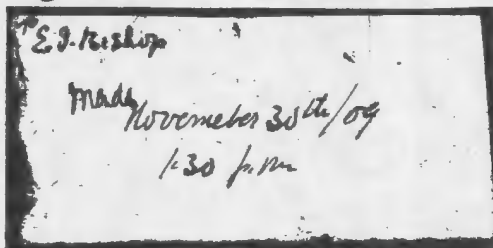 E. J. Bishop
Made
Novemeber 30th/09
1.30 p.m